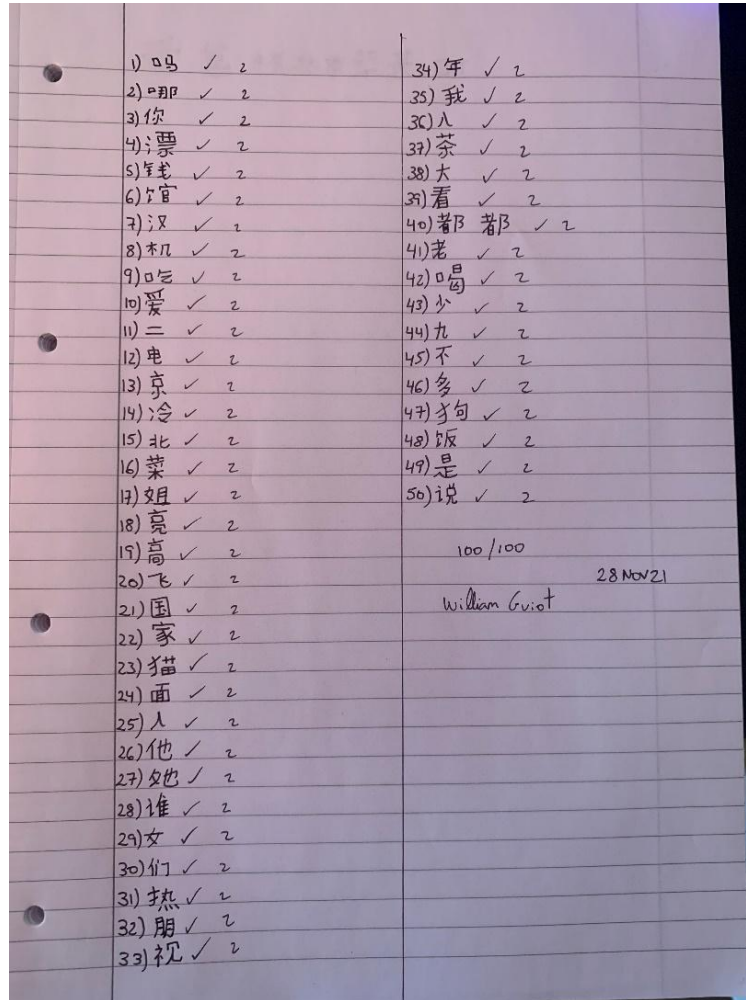 1) 吗 ✓ 2
2) 哪 ✓ 2
3) 你 ✓ 2
4) 漂 ✓ 2
5) 钱 ✓ 2
6) 馆 ✓ 2
7) 汉 ✓ 2
8) 机 ✓ 2
9) 吃 ✓ 2
10) 爱 ✓ 2
11) 二 ✓ 2
12) 电 ✓ 2
13) 京 ✓ 2
14) 冷 ✓ 2
15) 北 ✓ 2
16) 菜 ✓ 2
17) 姐 ✓ 2
18) 亮 ✓ 2
19) 高 ✓ 2
20) 飞 ✓ 2
21) 国 ✓ 2
22) 家 ✓ 2
23) 猫 ✓ 2
24) 面 ✓ 2
25) 人 ✓ 2
26) 他 ✓ 2
27) 她 ✓ 2
28) 谁 ✓ 2
29) 女 ✓ 2
30) 们 ✓ 2
31) 热 ✓ 2
32) 朋 ✓ 2
33) 视 ✓ 2
34) 年 ✓ 2
35) 我 ✓ 2
36) 八 ✓ 2
37) 茶 ✓ 2
38) 大 ✓ 2
39) 看 ✓ 2
40) 都 都 ✓ 2
41) 老 ✓ 2
42) 喝 ✓ 2
43) 少 ✓ 2
44) 九 ✓ 2
45) 不 ✓ 2
46) 多 ✓ 2
47) 狗 ✓ 2
48) 饭 ✓ 2
49) 是 ✓ 2
50) 说 ✓ 2
100/100
28 NOV 21
William Guiot